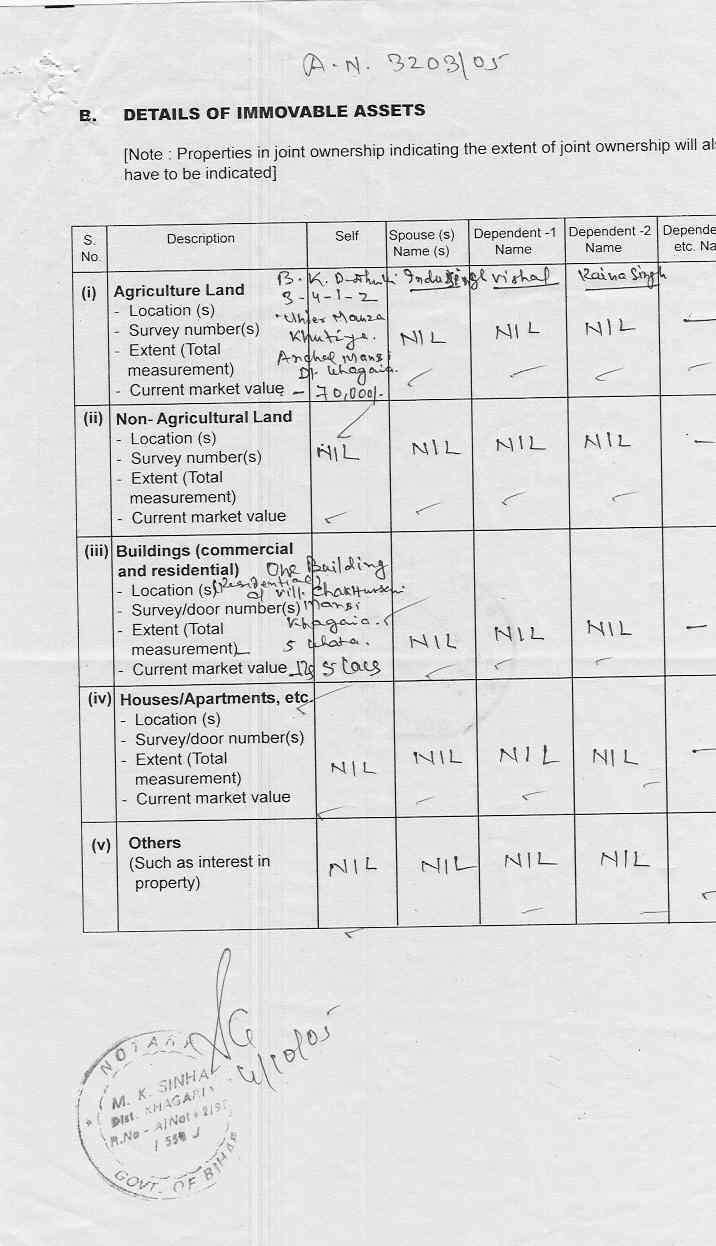 A.N. 3203/05
B. DETAILS OF IMMOVABLE ASSETS
[Note : Properties in joint ownership indicating the extent of joint ownership will als
have to be indicated]
S. No. Description Self Spouse (s) Name (s) Dependent -1 Name Dependent -2 Name Depende etc. Na
B. K. D- Indu Singh Vishal Raina Singh
(i) Agriculture Land 3-4-1-2
- Location (s) Mauza
- Survey number(s) Khutiya. NIL NIL NIL —
- Extent (Total Anchal Mansi
measurement) Dt. Khagaia.
- Current market value – 70,000/-
(ii) Non- Agricultural Land
- Location (s) NIL NIL NIL NIL —
- Survey number(s)
- Extent (Total
measurement)
- Current market value
(iii) Buildings (commercial
and residential) One Building
- Location (s) (Residential) of Vill.
- Survey/door number(s) Mansi
- Extent (Total Khagaia.
measurement) 5 NIL NIL NIL —
- Current market value Rs 5 Lacs
(iv) Houses/Apartments, etc.
- Location (s)
- Survey/door number(s)
- Extent (Total NIL NIL NIL NIL —
measurement)
- Current market value
(v) Others
(Such as interest in NIL NIL NIL NIL
property)
/10/05
NOTARY
M. K. SINHA
Dist. KHAGARIA
R.No -
GOVT. OF BIHAR